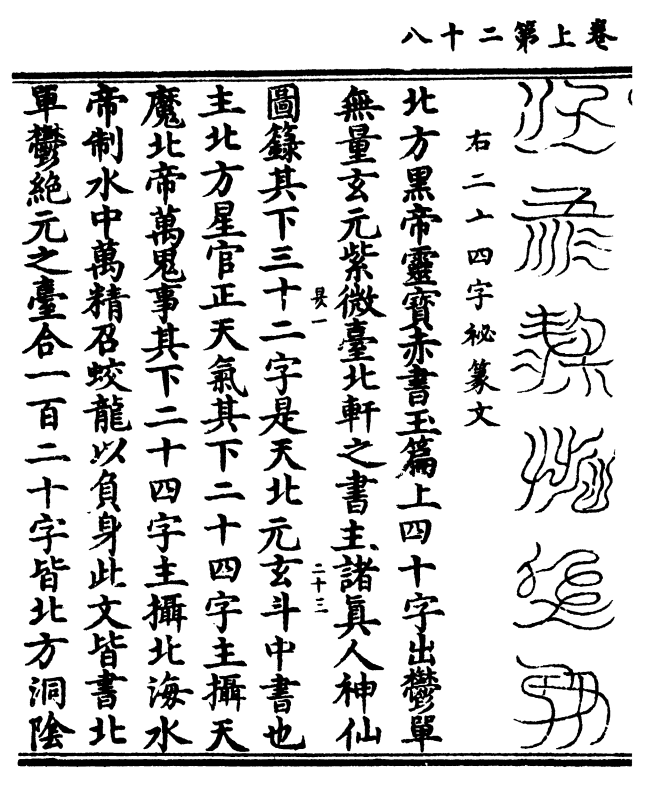 卷上第二十八
右二十四字祕篆文
北方黑帝靈寶赤書玉篇上四十字出鬱單
無量玄元紫微臺北軒之書主諸真人神仙
圖籙其下三十二字是天北元玄斗中書也
主北方星官正天氣其下二十四字主攝天
魔北帝萬鬼事其下二十四字主攝北海水
帝制水中萬精召蛟龍以負身此文皆書北
單鬱絕元之臺合一百二十字皆北方洞陰
二十三